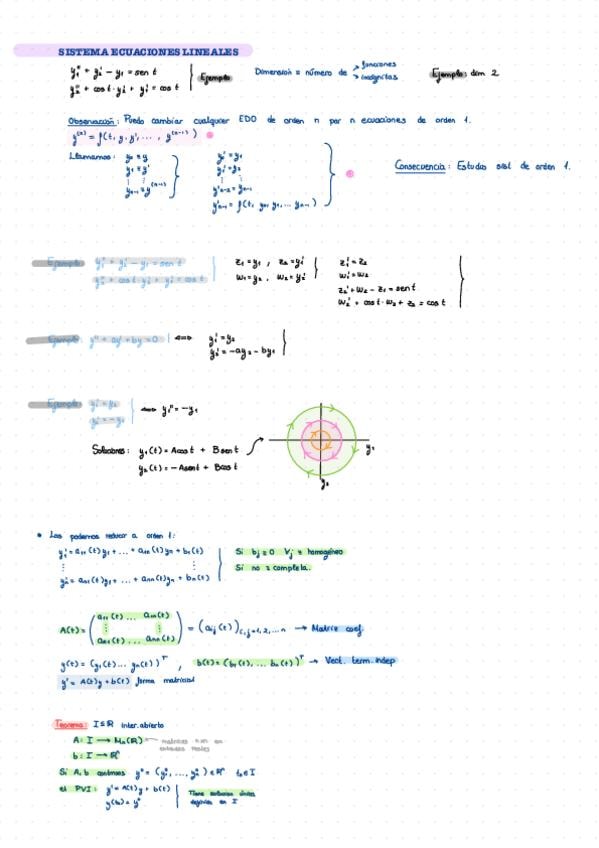 SISTEMA ECUACIONES LINEALES
y₁'' + y₂' − y₁ = sen t
y₂'' + cos t · y₂' + y₁' = cos t
Ejemplo
Dimension = número de > funciones > incógnitas
Ejemplo: dim 2
Observación: Puedo cambiar cualquier EDO de orden n por n ecuaciones de orden 1.
y⁽ⁿ⁾ = f(t, y, y', ..., y⁽ⁿ⁻¹⁾)
Llamamos: y₀ = y
y₁ = y'
⋮
yₙ₋₁ = y⁽ⁿ⁻¹⁾
y₀' = y₁
y₁' = y₂
⋮
y'ₙ₋₂ = yₙ₋₁
y'ₙ₋₁ = f(t, y₀, y₁, ... yₙ₋₁)
Consecuencia: Estudio sist de orden 1.
Ejemplo y₁'' + y₂' − y₁ = sen t
y₂'' + cos t y₂' + y₁' = cos t
z₁ = y₁, z₂ = y₁'
w₁ = y₂, w₂ = y₂'
z₁' = z₂
w₁' = w₂
z₂' + w₂ − z₁ = sen t
w₂' + cos t · w₂ + z₂ = cos t
Ejemplo y'' + ay' + by = 0 ⟺ y₁' = y₂
y₂' = −ay₂ − by₁
Ejemplo y₁' = y₂
y₂' = −y₁
⟺ y₁'' = −y₁
Soluciones: y₁(t) = A cos t + B sen t
y₂(t) = −A sen t + B cos t
y₁
y₂
• Los podemos reducir a orden 1:
y₁' = a₁₁(t)y₁ + ... + a₁ₙ(t)yₙ + b₁(t)
⋮ ⋮
yₙ' = aₙ₁(t)y₁ + ... + aₙₙ(t)yₙ + bₙ(t)
Si bj = 0 ∀j = homogéneo
Si no = completa.
A(t) = (a₁₁(t) ... a₁ₙ(t)
⋮ ⋮
aₙ₁(t) ... aₙₙ(t)) = (aᵢⱼ(t)) i,j=1,2,...n → Matriz coef.
y(t) = (y₁(t) ... yₙ(t))ᵀ, b(t) = (b₁(t), ... bₙ(t))ᵀ → Vect. term. indep
y' = A(t)y + b(t) forma matricial
Teorema: I ⊆ ℝ inter. abierto
A: I → Mₙ(ℝ) matrices nxn en entradas reales
b: I → ℝⁿ
Si A, b continuas y⁰ = (y₁⁰, ..., yₙ⁰) ∈ ℝⁿ t₀ ∈ I
el PVI: y' = A(t)y + b(t)
y(t₀) = y⁰
Tiene solucion única
en I